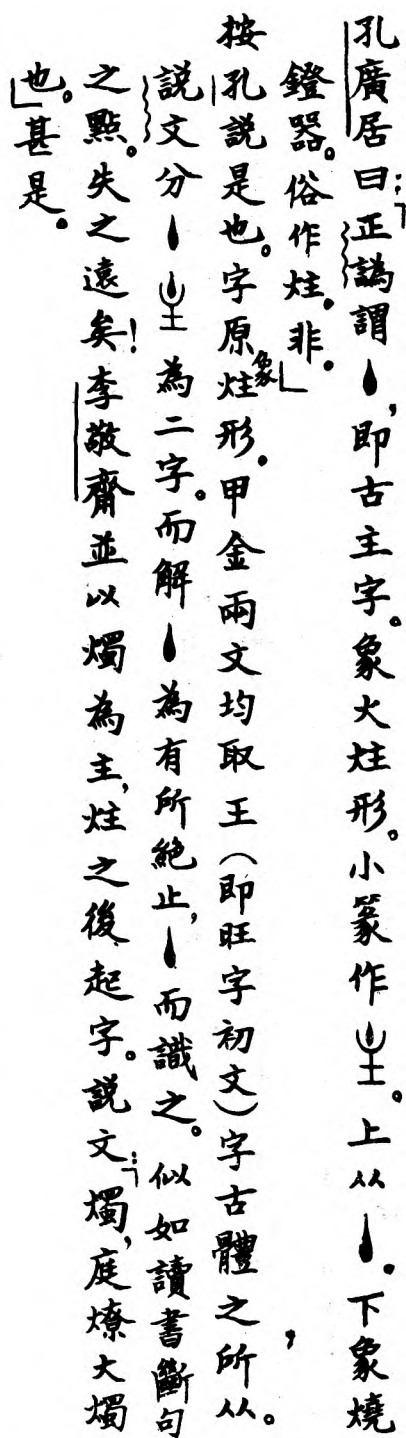 孔廣居曰:「正譌謂丶,即古主字。象火炷形。小篆作𡉀。上从丶。下象燒
鐙器。俗作炷。非。」
按孔說是也。字原象炷形。甲金兩文均取王(即旺字初文)字古體之所从。
說文分丶𡉀為二字。而解丶為有所絕止,丶而識之。似如讀書斷句
之點。失之遠矣!李敬齋並以燭為主,炷之後起字。說文:「燭,庭燎大燭
也。」甚是。